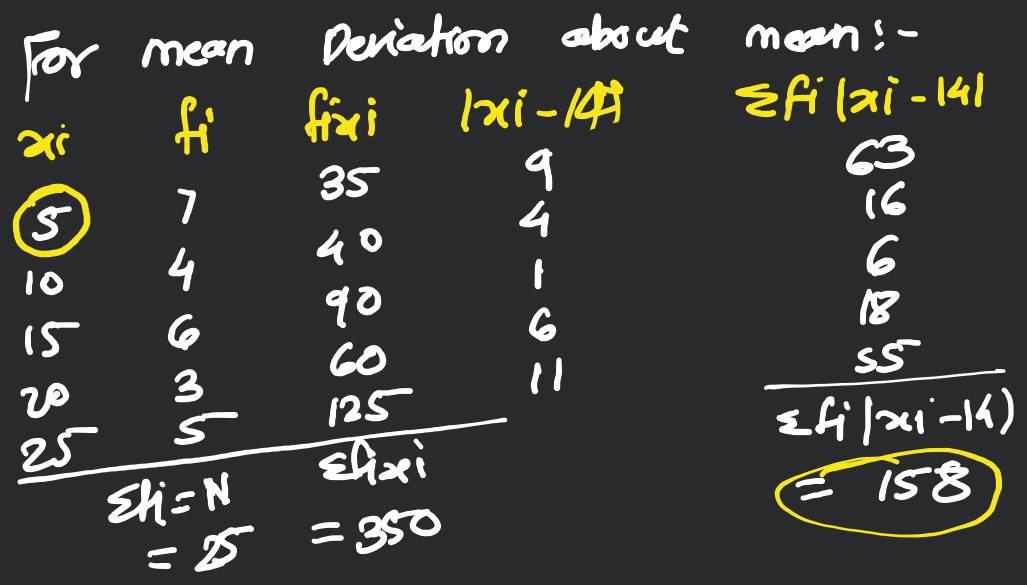 For mean Deviation about mean :-
xi fi fixi |xi-14| Σfi |xi-14|
5 7 35 9 63
10 4 40 4 16
15 6 90 1 6
20 3 60 6 18
25 5 125 11 55
Σfi = N Σfixi Σfi |xi-14)
= 25 = 350 = 158